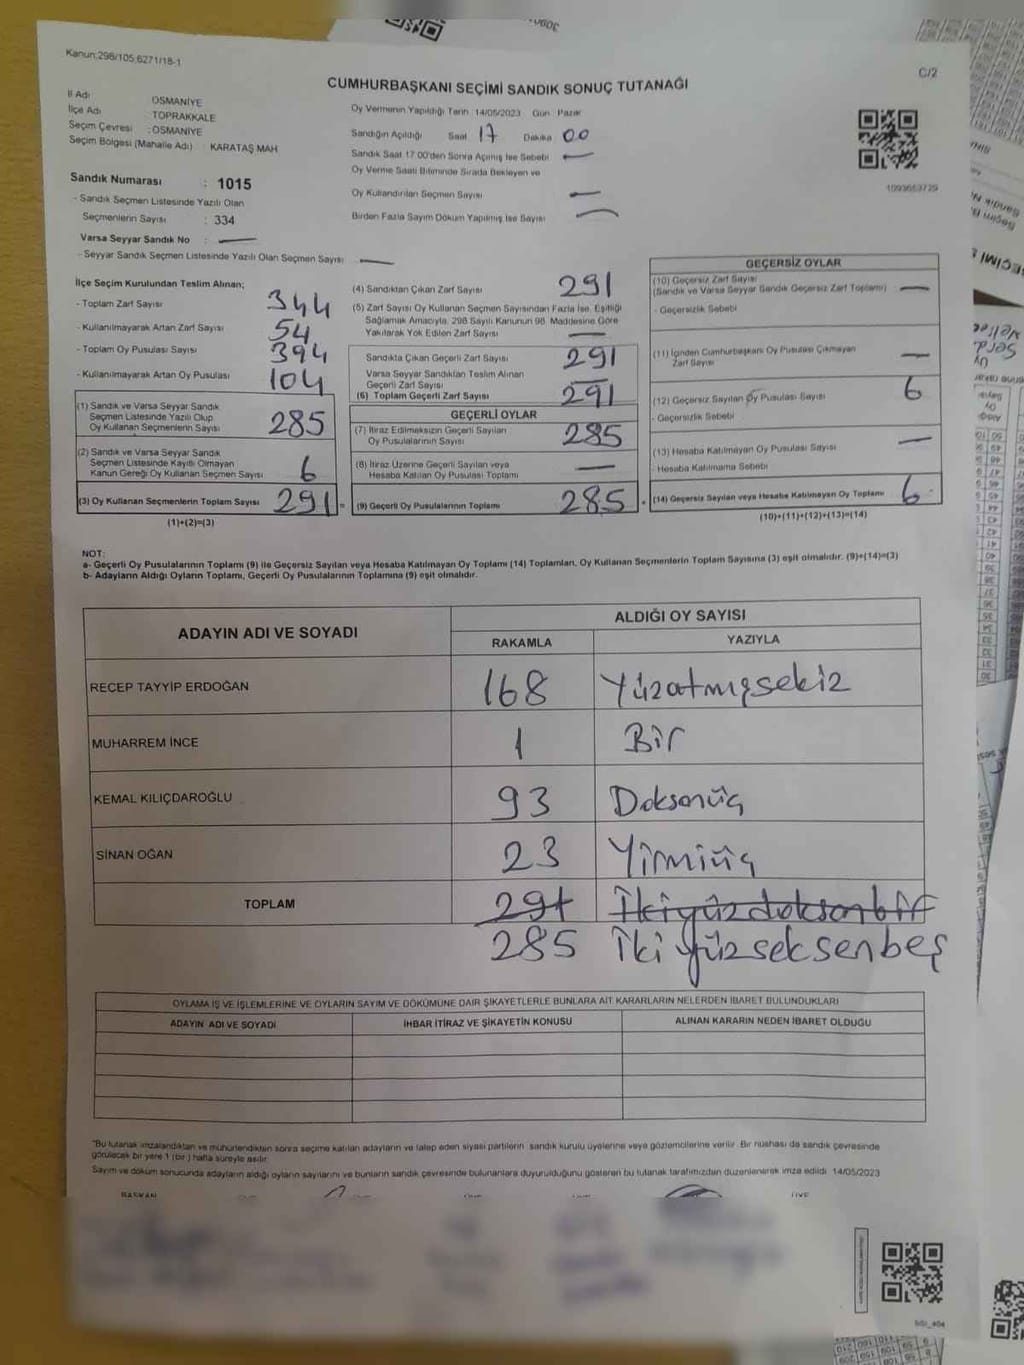 Kanun:298/105;6271/18-1
C/2
CUMHURBAŞKANI SEÇİMİ SANDIK SONUÇ TUTANAĞI
İl Adı OSMANİYE
İlçe Adı TOPRAKKALE
Seçim Çevresi : OSMANİYE
Seçim Bölgesi (Mahalle Adı) : KARATAŞ MAH
Sandık Numarası : 1015
- Sandık Seçmen Listesinde Yazılı Olan
Seçmenlerin Sayısı : 334
Varsa Seyyar Sandık No :
- Seyyar Sandık Seçmen Listesinde Yazılı Olan Seçmen Sayısı :
Oy Vermenin Yapıldığı Tarih 14/05/2023 Gün Pazar
Sandığın Açıldığı Saat 17 Dakika 00
Sandık Saat 17:00'den Sonra Açılmış İse Sebebi
Oy Verme Saati Bitiminde Sırada Bekleyen ve
Oy Kullandırılan Seçmen Sayısı
Birden Fazla Sayım Döküm Yapılmış İse Sayısı
1093653729
İlçe Seçim Kurulundan Teslim Alınan;
- Toplam Zarf Sayısı 344
- Kullanılmayarak Artan Zarf Sayısı 54
- Toplam Oy Pusulası Sayısı 394
- Kullanılmayarak Artan Oy Pusulası 104
(1) Sandık ve Varsa Seyyar Sandık
Seçmen Listesinde Yazılı Olup
Oy Kullanan Seçmenlerin Sayısı 285
(2) Sandık ve Varsa Seyyar Sandık
Seçmen Listesinde Kayıtlı Olmayan
Kanun Gereği Oy Kullanan Seçmen Sayısı 6
(3) Oy Kullanan Seçmenlerin Toplam Sayısı 291 =
(1)+(2)=(3)
(4) Sandıktan Çıkan Zarf Sayısı 291
(5) Zarf Sayısı Oy Kullanan Seçmen Sayısından Fazla İse, Eşitliği
Sağlamak Amacıyla, 298 Sayılı Kanunun 98. Maddesine Göre
Yakılarak Yok Edilen Zarf Sayısı
Sandıkta Çıkan Geçerli Zarf Sayısı 291
Varsa Seyyar Sandıktan Teslim Alınan
Geçerli Zarf Sayısı
(6) Toplam Geçerli Zarf Sayısı 291
GEÇERLİ OYLAR
(7) İtiraz Edilmeksizin Geçerli Sayılan
Oy Pusulalarının Sayısı 285
(8) İtiraz Üzerine Geçerli Sayılan veya
Hesaba Katılan Oy Pusulası Toplamı
(9) Geçerli Oy Pusulalarının Toplamı 285 +
GEÇERSİZ OYLAR
(10) Geçersiz Zarf Sayısı
(Sandık ve Varsa Seyyar Sandık Geçersiz Zarf Toplamı)
- Geçersizlik Sebebi
(11) İçinden Cumhurbaşkanı Oy Pusulası Çıkmayan
Zarf Sayısı
(12) Geçersiz Sayılan Oy Pusulası Sayısı 6
- Geçersizlik Sebebi
(13) Hesaba Katılmayan Oy Pusulası Sayısı
- Hesaba Katılmama Sebebi
(14) Geçersiz Sayılan veya Hesaba Katılmayan Oy Toplamı 6
(10)+(11)+(12)+(13)=(14)
NOT:
a- Geçerli Oy Pusulalarının Toplamı (9) ile Geçersiz Sayılan veya Hesaba Katılmayan Oy Toplamı (14) Toplamları, Oy Kullanan Seçmenlerin Toplam Sayısına (3) eşit olmalıdır. (9)+(14)=(3)
b- Adayların Aldığı Oyların Toplamı, Geçerli Oy Pusulalarının Toplamına (9) eşit olmalıdır.
ADAYIN ADI VE SOYADI
ALDIĞI OY SAYISI
RAKAMLA YAZIYLA
RECEP TAYYİP ERDOĞAN 168 Yüzatmışsekiz
MUHARREM İNCE 1 Bir
KEMAL KILIÇDAROĞLU 93 Doksanüç
SİNAN OĞAN 23 Yirmiüç
TOPLAM 291 İkiyüzdoksanbir
285 İkiyüzseksenbeş
OYLAMA İŞ VE İŞLEMLERİNE VE OYLARIN SAYIM VE DÖKÜMÜNE DAİR ŞİKAYETLERLE BUNLARA AİT KARARLARIN NELERDEN İBARET BULUNDUKLARI
ADAYIN ADI VE SOYADI İHBAR İTİRAZ VE ŞİKAYETİN KONUSU ALINAN KARARIN NEDEN İBARET OLDUĞU
"Bu tutanak imzalandıktan ve mühürlendikten sonra seçime katılan adayların ve talep eden siyasi partilerin sandık kurulu üyelerine veya gözlemcilerine verilir. Bir nüshası da sandık çevresinde
görülecek bir yere 1 (bir) hafta süreyle asılır.
Sayım ve döküm sonucunda adayların aldığı oyların sayılarını ve bunların sandık çevresinde bulunanlara duyurulduğunu gösteren bu tutanak tarafımızdan düzenlenerek imza edildi 14/05/2023
BAŞKAN